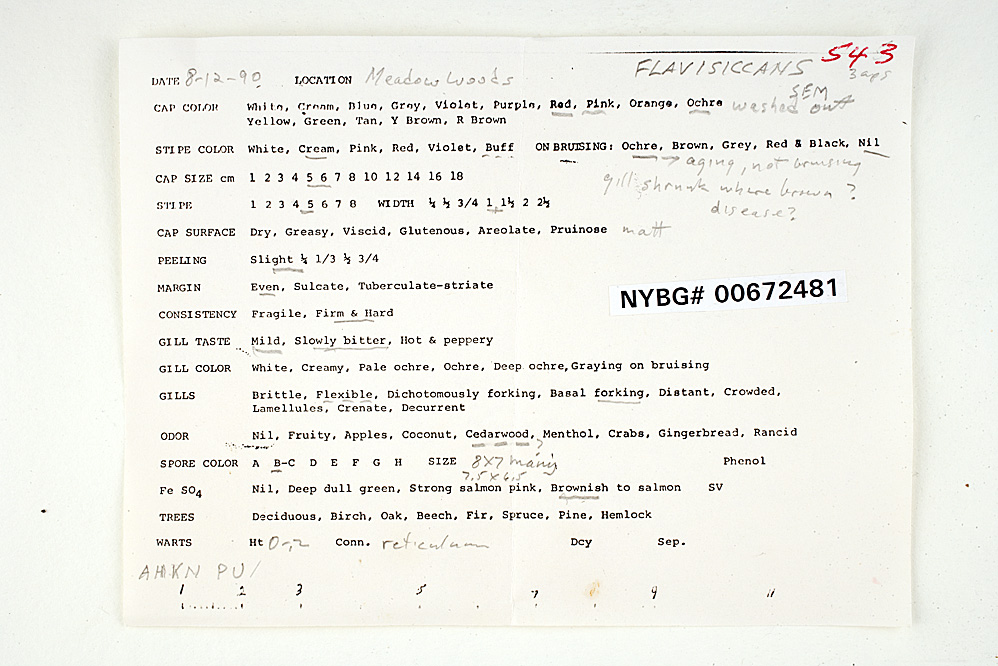 543
FLAVISICCANS
3 aps
DATE 8-12-90 LOCATION Meadow Woods
SEM
CAP COLOR White, Cream, Blue, Grey, Violet, Purple, Red, Pink, Orange, Ochre washed out
Yellow, Green, Tan, Y Brown, R Brown
STIPE COLOR White, Cream, Pink, Red, Violet, Buff ON BRUISING: Ochre, Brown, Grey, Red & Black, Nil
→ aging, not bruising
CAP SIZE cm 1 2 3 4 5 6 7 8 10 12 14 16 18
gill shrunk where brown?
STIPE 1 2 3 4 5 6 7 8 WIDTH ¼ ½ 3/4 1 1½ 2 2½
disease?
CAP SURFACE Dry, Greasy, Viscid, Glutenous, Areolate, Pruinose matt
PEELING Slight ¼ 1/3 ½ 3/4
MARGIN Even, Sulcate, Tuberculate-striate
NYBG# 00672481
CONSISTENCY Fragile, Firm & Hard
GILL TASTE Mild, Slowly bitter, Hot & peppery
GILL COLOR White, Creamy, Pale ochre, Ochre, Deep ochre,Graying on bruising
GILLS Brittle, Flexible, Dichotomously forking, Basal forking, Distant, Crowded,
Lamellules, Crenate, Decurrent
ODOR Nil, Fruity, Apples, Coconut, Cedarwood, Menthol, Crabs, Gingerbread, Rancid
SPORE COLOR A B-C D E F G H SIZE 8X7 many Phenol
7.5 X 6.5
Fe SO4 Nil, Deep dull green, Strong salmon pink, Brownish to salmon SV
TREES Deciduous, Birch, Oak, Beech, Fir, Spruce, Pine, Hemlock
WARTS Ht 0-.2 Conn. reticulum Dcy Sep.
PU/
1 2 3 5 7 9 11